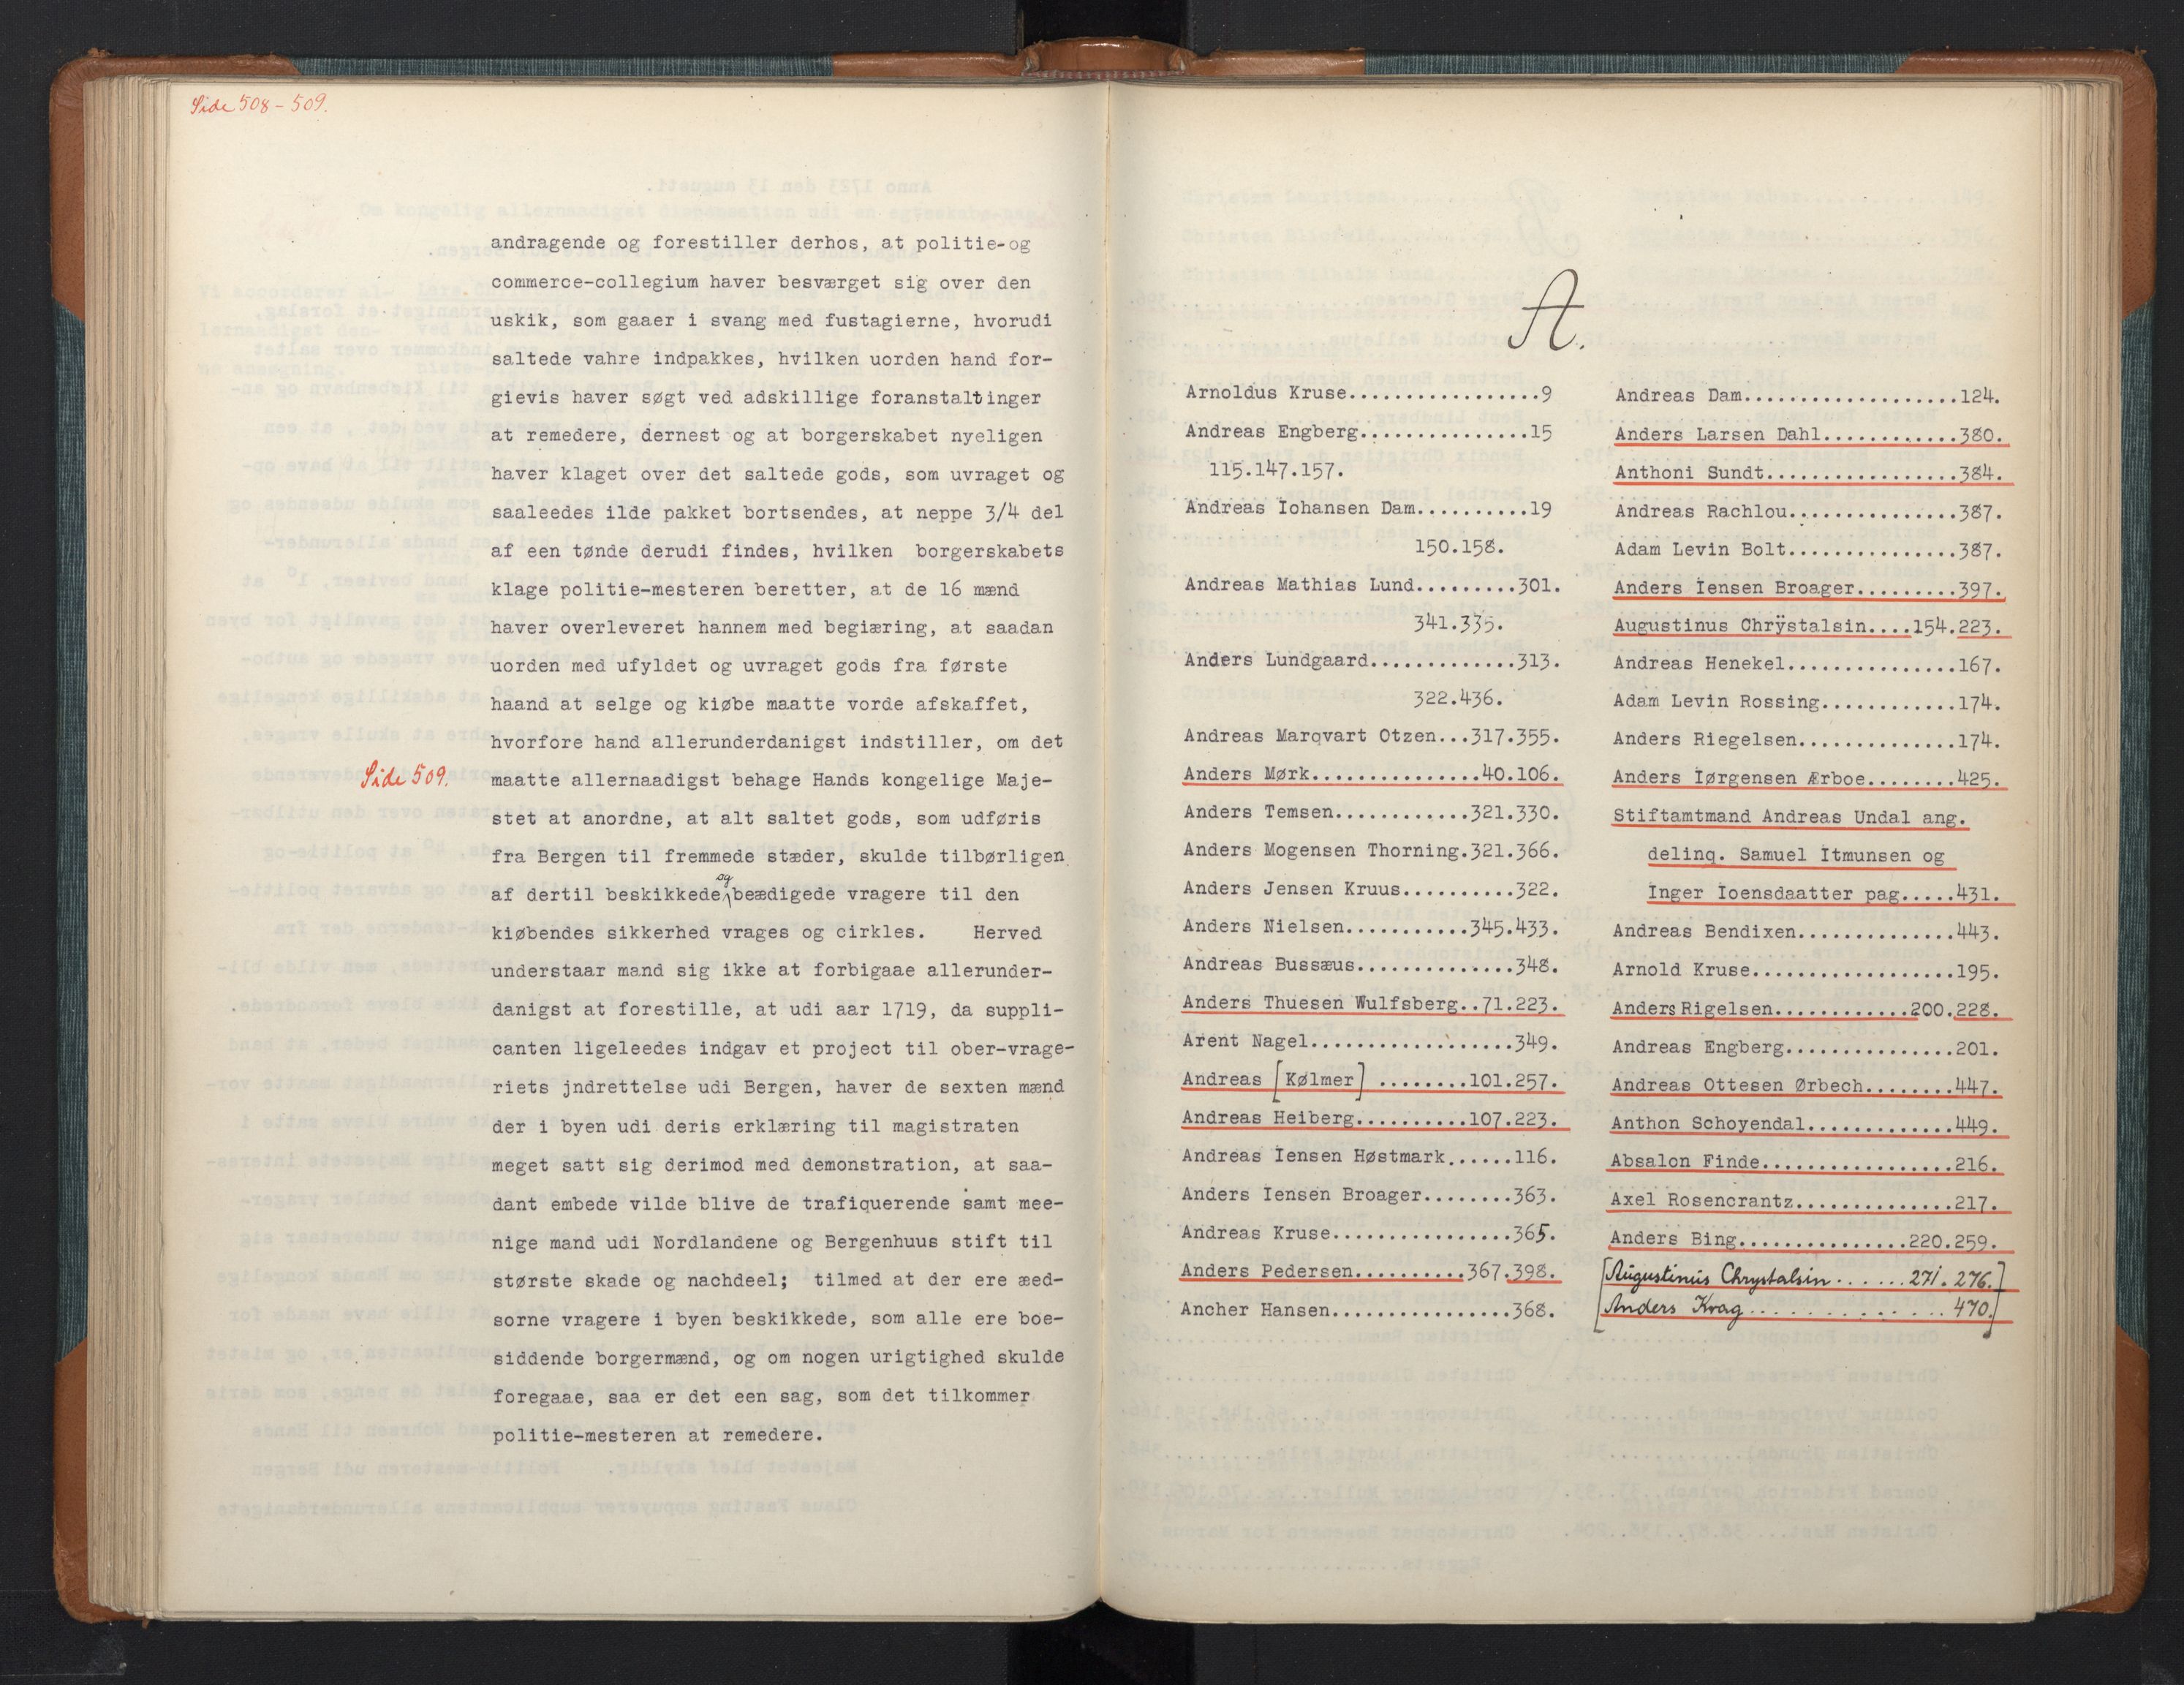 Side 508-509.
andragende og forestiller derhos, at politie-og
commerce-collegium haver besværget sig over den
uskik, som gaaer i svang med fustagierne, hvorudi
saltede vahre indpakkes, hvilken uorden hand for-
gievis haver søgt ved adskillige foranstaltinger
at remedere, dernest og at borgerskabet nyeligen
haver klaget over det saltede gods, som uvraget og
saaleedes ilde pakket bortsendes, at neppe 3/4 del
af een tønde derudi findes, hvilken borgerskabets
klage politie-mesteren beretter, at de 16 mænd
haver overleveret hannem med begiæring, at saadan
uorden med ufyldet og uvraget gods fra første
haand at selge og kiøbe maatte vorde afskaffet,
hvorfore hand allerunderdanigst indstiller, om det
Side 509. maatte allernaadigst behage Hands kongelige Maje-
stet at anordne, at alt saltet gods, som udføris
fra Bergen til fremmede stæder, skulde tilbørligen
af dertil beskikkede og beædigede vragere til den
kiøbendes sikkerhed vrages og cirkles. Herved
understaar mand sig ikke at forbigaae allerunder-
danigst at forestille, at udi aar 1719, da suppli-
canten ligeleedes indgav et project til ober-vrage-
riets jndrettelse udi Bergen, haver de sexten mænd
der i byen udi deris erklæring til magistraten
meget satt sig derimod med demonstration, at saa-
dant embede vilde blive de trafiquerende samt mee-
nige mand udi Nordlandene og Bergenhuus stift til
største skade og nachdeel; tilmed at der ere æed-
sorne vragere i byen beskikkede, som alle ere boe-
siddende borgermænd, og om nogen urigtighed skulde
foregaae, saa er det een sag, som det tilkommer
politie-mesteren at remedere.
A.
Arnoldus Kruse.................9
Andreas Engberg...............15
115.147.157.
Andreas Iohansen Dam..........19
150.158.
Andreas Mathias Lund.........301.
341.335.
Anders Lundgaard.............313.
322.436.
Andreas Marqvart Otzen...317.355.
Anders Mørk...............40.106.
Anders Temsen............321.330.
Anders Mogensen Thorning.321.366.
Anders Jensen Kruus..........322.
Anders Nielsen...........345.433.
Andreas Bussæus..............348.
Anders Thuesen Wulfsberg..71.223.
Arent Nagel..................349.
Andreas [Kølmer] ........101.257.
Andreas Heiberg..........107.223.
Andreas Iensen Høstmark......116.
Anders Iensen Broager........363.
Andreas Kruse................365.
Anders Pedersen..........367.398.
Ancher Hansen................368.
Andreas Dam...................124.
Anders Larsen Dahl............380.
Anthoni Sundt.................384.
Andreas Rachlou...............387.
Adam Levin Bolt...............387.
Anders Iensen Broager.........397.
Augustinus Chrÿstalsin....154.223.
Andreas Henekel...............167.
Adam Levin Rossing............174.
Anders Riegelsen..............174.
Anders Iørgensen Ærboe........425.
Stiftamtmand Andreas Undal ang.
delinq. Samuel Itmunsen og
Inger Ioensdaatter pag.....431.
Andreas Bendixen..............443.
Arnold Kruse..................195.
Anders Rigelsen............200.228.
Andreas Engberg...............201.
Andreas Ottesen Ørbech........447.
Anthon Schoyendal.............449.
Absalon Finde.................216.
Axel Rosencrantz..............217.
Anders Bing...............220.259.
[Augustinus Chrystalsin......271.276.]
[Anders Krag..............470.]